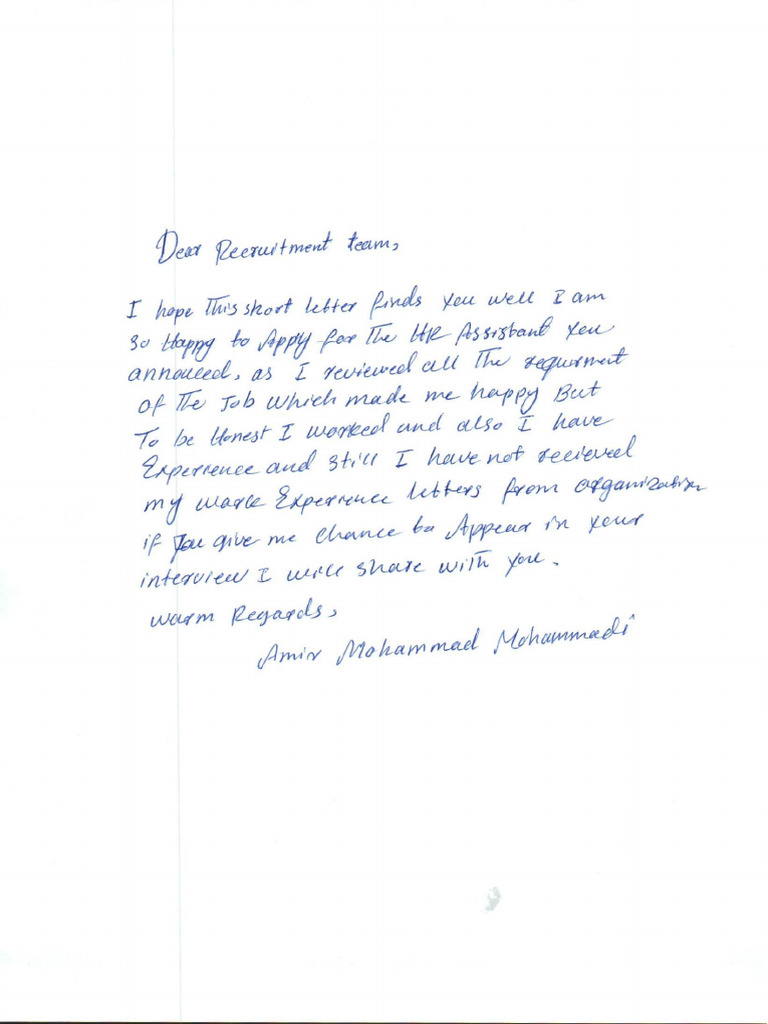 Dear Recruitment team,
I hope This short letter finds you well I am
so Happy to Appy for The HR Assistant you
annouced, as I reviewed all The requirment
of The Job which made me happy But
To be Honest I worked and also I have
Experience and still I have not recieved
my work Experience letters from organization
if you give me chance to Appear in your
interview I will share with you.
warm Regards,
Amir Mohammad Mohammadi